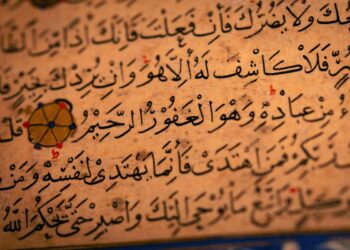 وَلَا يَضُرُّكَ فَاِنْ فَعَلْتَ فَاِنَّكَ اِذًا مِنَ
فَلَا كَاشِفَ لَهُ اِلَّا هُوَ وَاِنْ يُرِدْكَ بِخَيْرٍ فَلَا
مِنْ عِبَادِهِ وَهُوَ الْغَفُورُ الرَّحِيمُ قُلْ
رَبِّكُمْ فَمَنِ اهْتَدَى فَاِنَّمَا يَهْتَدِى لِنَفْسِهِ وَمَنْ
وَاتَّبِعْ مَا يُوحَى اِلَيْكَ وَاصْبِرْ حَتَّى يَحْكُمَ اللّٰهُ